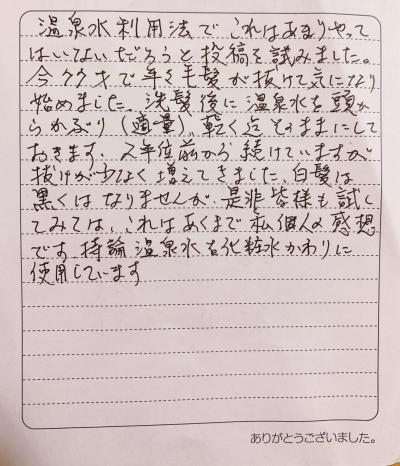 温泉水利用法でこれはあまりやって
はいないだろうと投稿を試みました。
今77才で年々毛髪が抜けて気になり
始めました。洗髪後に温泉水を頭か
らかぶり(適量)、乾く迄そのままにして
おきます。2年位前から続けていますが
抜けが少なく増えてきました。白髪は
黒くはなりませんが、是非皆様も試し
てみては、これはあくまで私個人の感想
です 持論 温泉水を化粧水かわりに
使用しています
ありがとうございました。